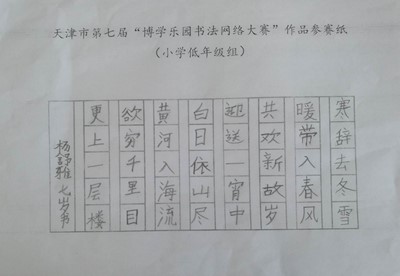 天津市第七届“博学乐园书法网络大赛”作品参赛纸
（小学低年级组）
寒辞去冬雪
暖带入春风
共欢新故岁
迎送一宵中
白日依山尽
黄河入海流
欲穷千里目
更上一层楼
杨舒雅七岁半